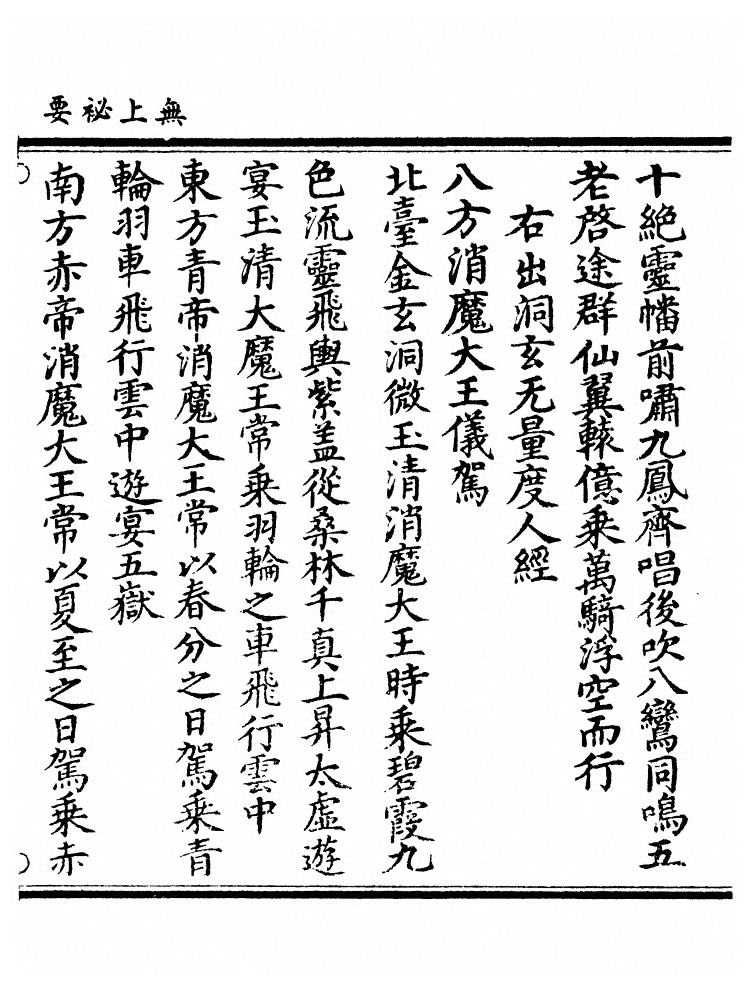 無上祕要
十絶靈幡前嘯九鳳齊唱後吹八鸞同鳴五
老啓途群仙翼轅億乗萬騎浮空而行
右出洞玄无量度人經
八方消魔大王儀駕
北臺金玄洞微玉清消魔大王時乗碧霞九
色流靈飛輿紫盖從桑林千真上昇太虛遊
宴玉清大魔王常乗羽輪之車飛行雲中
東方青帝消魔大王常以春分之日駕乗青
輪羽車飛行雲中遊宴五嶽
南方赤帝消魔大王常以夏至之日駕乗赤